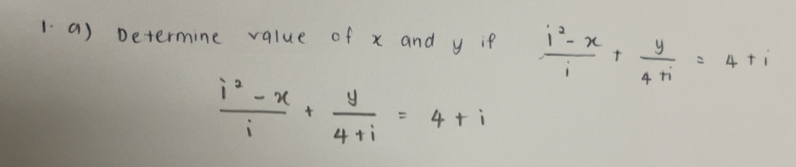 1. a) Determine value of x and y if (i² - x)/i + y/(4 + i) = 4 + i
(i² - x)/i + y/(4 + i) = 4 + i